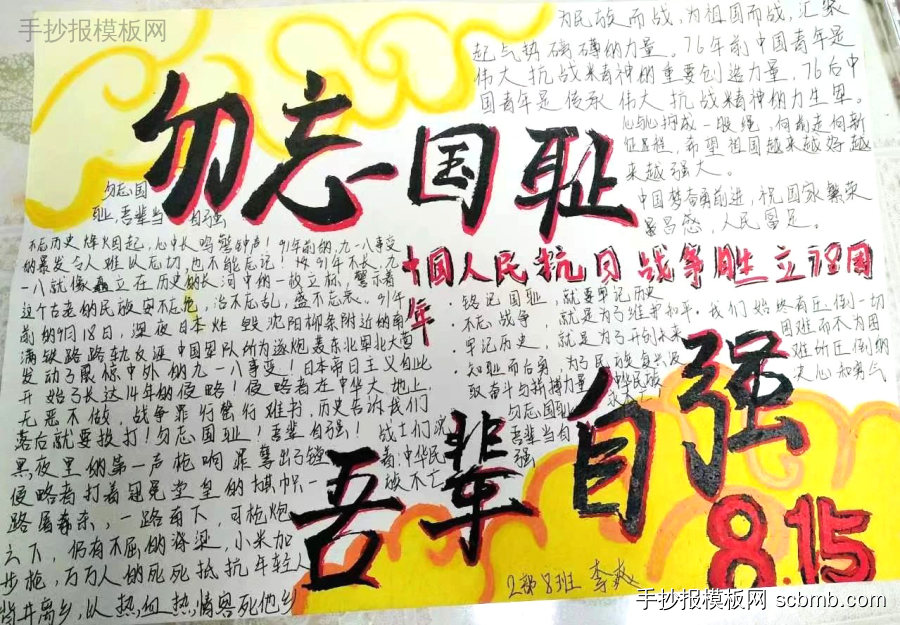 手抄报模板网
为民族而战，为祖国而战，汇聚
起气势磅礴的力量。76年前中国青年是
伟大抗战精神的重要创造力量，76后中
国青年是传承伟大抗战精神的力生军。
心心拥成一股绳，向前走向新
征程，希望祖国越来越好越
来越强大。
中国梦奋勇前进，祝国家繁荣
昌盛，人民富足。
勿忘国耻
勿忘国
耻，吾辈当自强
不忘历史烽火国起，心中长鸣警钟声！91年前的九一八事变
的暴发令人难以忘切，也不能忘记！
一八就像矗立在历史的长河中的一般立标，警示着
这个古老的民族安不忘危，治不忘乱，盛不忘衰。91年
前的9月18日，深夜日本炸毁沈阳柳条附近的南
满铁路路轨反诬中国军队所为逐炮轰东北军北大营
发动了震惊中外的九一八事变！日本帝日主义自此
开始了长达14年的侵略！侵略者在中华大地上，
无恶不做，战争罪行罄行难书，历史告诉我们
落后就要挨打！勿忘国耻！吾辈自强！
黑夜里的第一声枪响罪孽出了镗
侵略者打着冠冕堂皇的旗帜
路屠森东，一路南下，可枪炮
之下，仍有不屈的脊梁，小米加
步枪，万万人的死死抵抗年轻人
背井离乡，以热血热情粤死他乡
战士们说
着，中华民
族不亡
中国人民抗日战争胜立78周
年
·铭记国耻，就要牢记历史
·不忘战争，就是为了维护和平
·牢记历史，就是为了开创未来
·知耻而后勇，为了民族复兴
取奋斗与拼搏力量
勿忘国耻
吾辈当自
强
我们始终有压倒一切
困难而不为困
难所压倒的
决心和勇气
吾辈自强
8.15
2部8班 李爽
手抄报模板网 scbmb.com